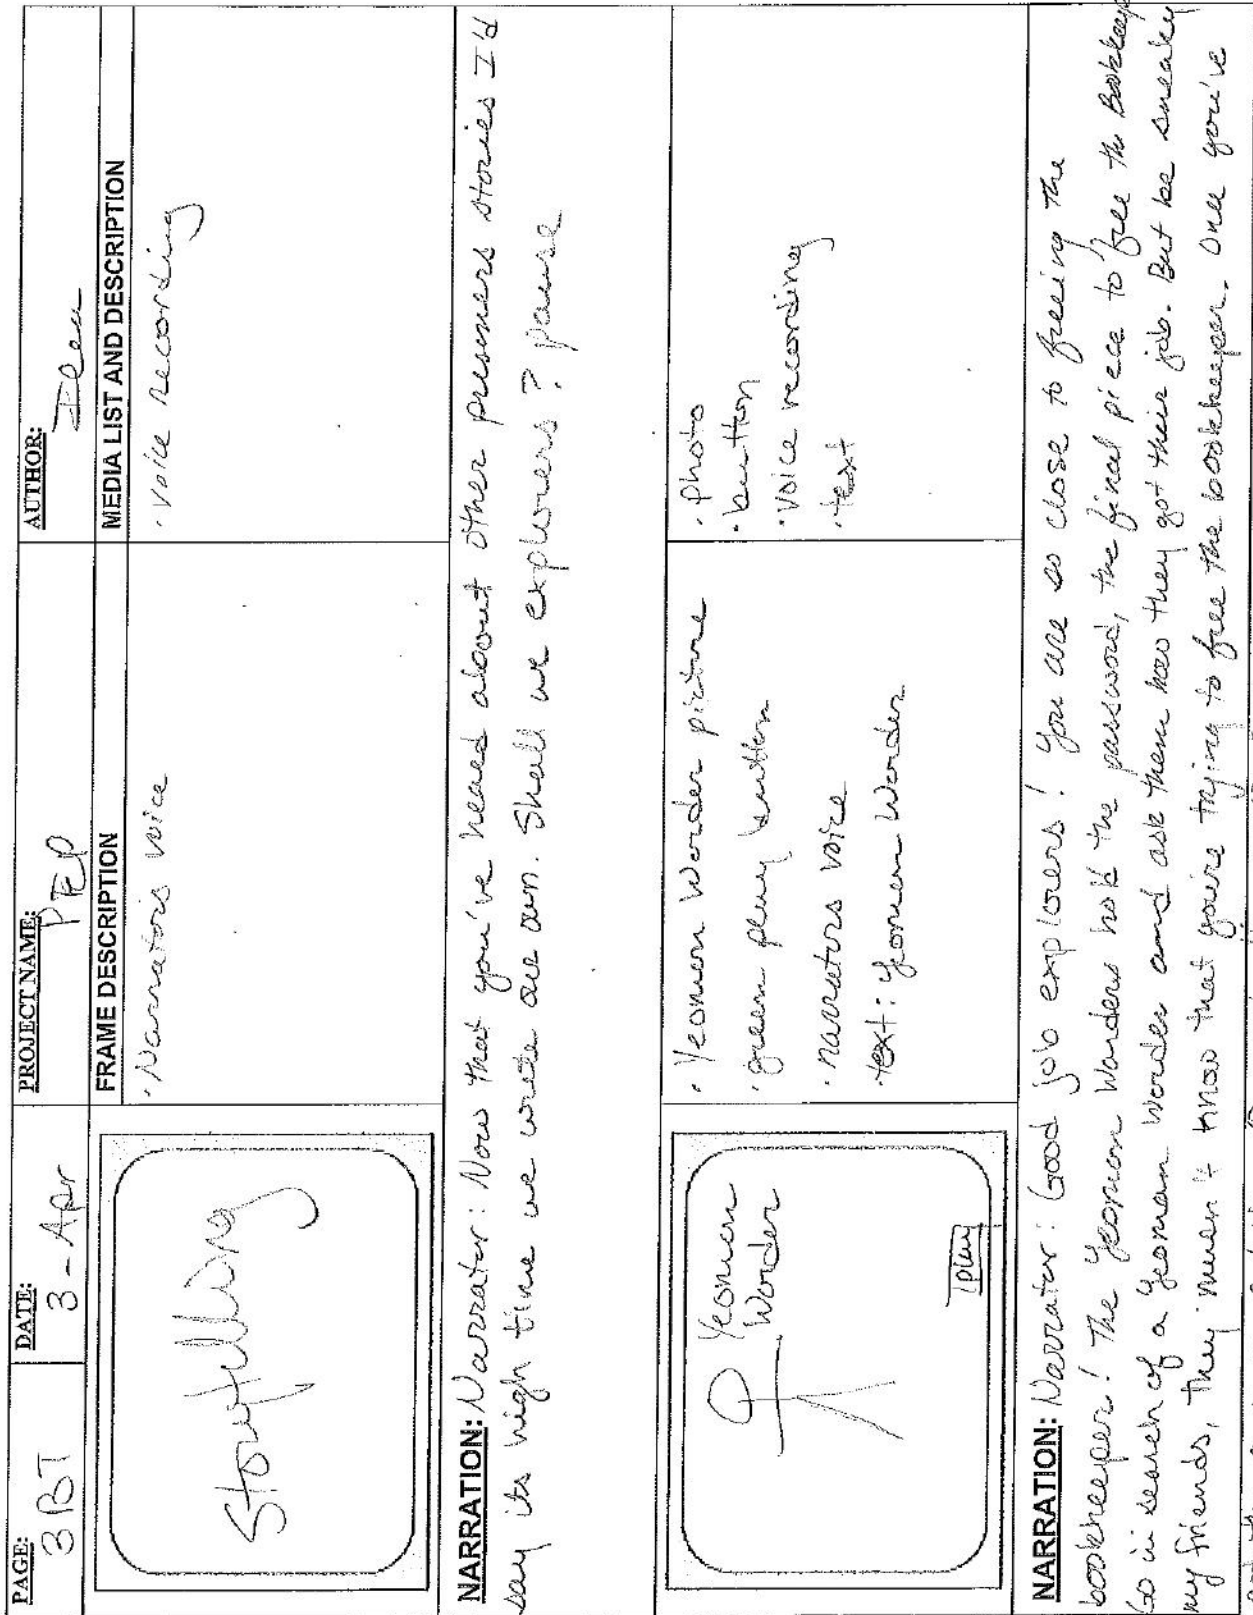 PAGE: 3BT
DATE: 3-Apr
PROJECT NAME: PEP
AUTHOR:
FRAME DESCRIPTION
MEDIA LIST AND DESCRIPTION
Storytelling
· Narrators voice
· voice recording
NARRATION: Narrator: Now that you've heard about other prisoners stories I'd
say its high time we write our own. Shall we explorers? pause
Yeomen
Warder
play
· Yeomen Warder picture
· green play button
· narrators voice
text: Yeomen Warder
· photo
· button
· voice recording
· text
NARRATION: Narrator: Good job explorers! You are so close to freeing the
bookkeeper! The Yeomen Warders hold the password, the final piece to free the Bookkeeper
Go in search of a Yeoman Warder and ask them how they got their job. But be sneaky
my friends, they musn't know that you're trying to free the bookkeeper. One you've